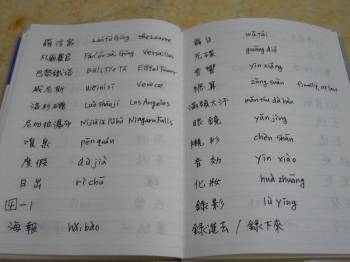 羅浮宮 Luó fú Gōng the Louvre
凡爾賽宮 Fán'ěr sài Gōng Versailles
巴黎鐵塔 Bālí Tiě Tǎ Eiffel Tower
威尼斯 Wēinísī Venice
洛杉磯 Luòshānjī Los Angeles
尼加拉瀑布 Níjiālā Pùbù Niagara Falls
噴泉 pēnquán
度假 dùjià
日出 rìchū
四-1
海報 hǎibào
光碟 guāng dié
音響 yīn xiǎng
總算 zǒng suàn finally,
滿頭大汗 mǎn tóu dà hàn
眼鏡 yǎn jìng
襯衫 chèn shān
音效 yīn xiào
化妝 huà zhuāng
錄影 lù yǐng
錄進去 / 錄下來